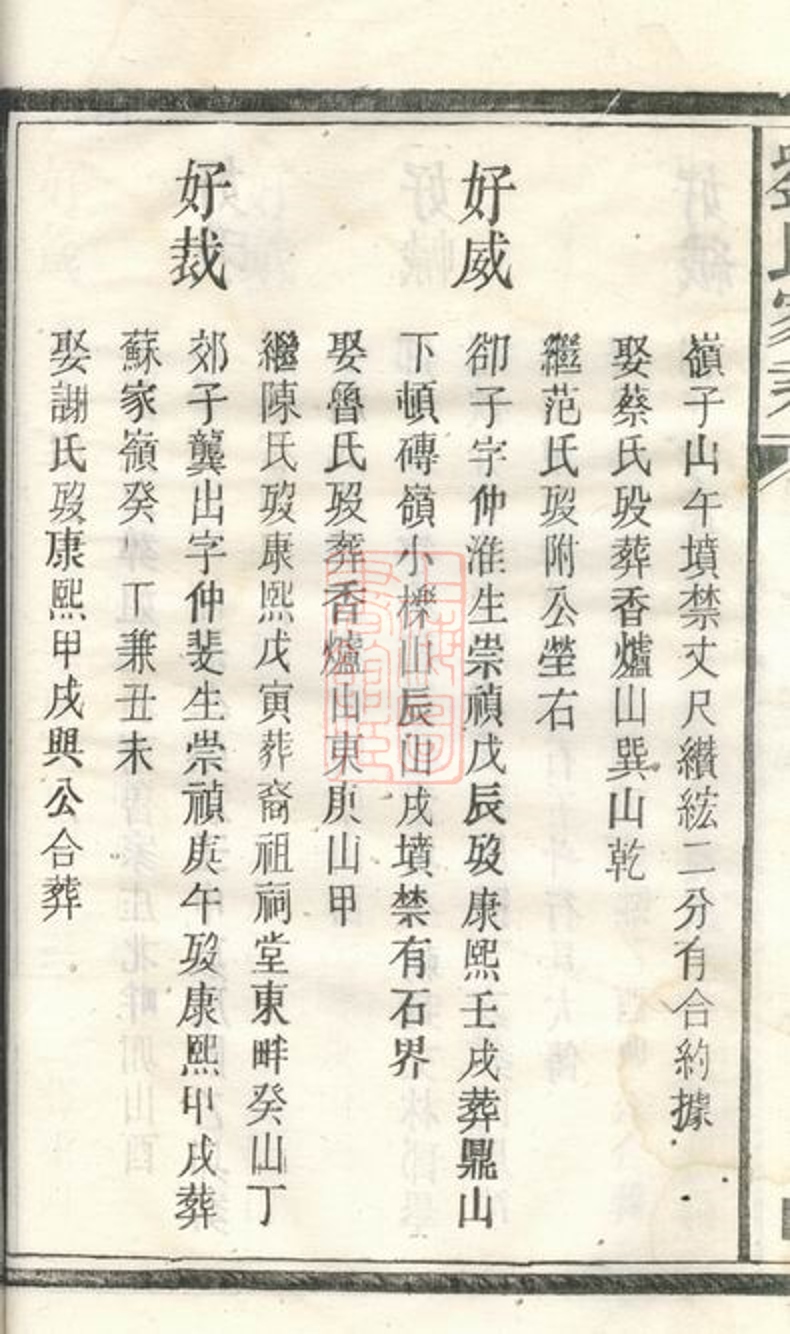 嶺子山午墳禁丈尺纘綋二分有合約據
娶蔡氏歿葬香爐山巽山乾
繼范氏歿附公塋右
好威
卹子字仲淮生崇禎戊辰歿康熙壬戌葬鼎山
下頓磚嶺小櫟山辰山戌墳禁有石界
娶魯氏歿葬香爐山東庚山甲
繼陳氏歿康熙戊寅葬裔祖祠堂東畔癸山丁
好裁
郊子龔出字仲斐生崇禎庚午歿康熙甲戌葬
蘇家嶺癸丁兼丑未
娶謝氏歿康熙甲戌與公合葬